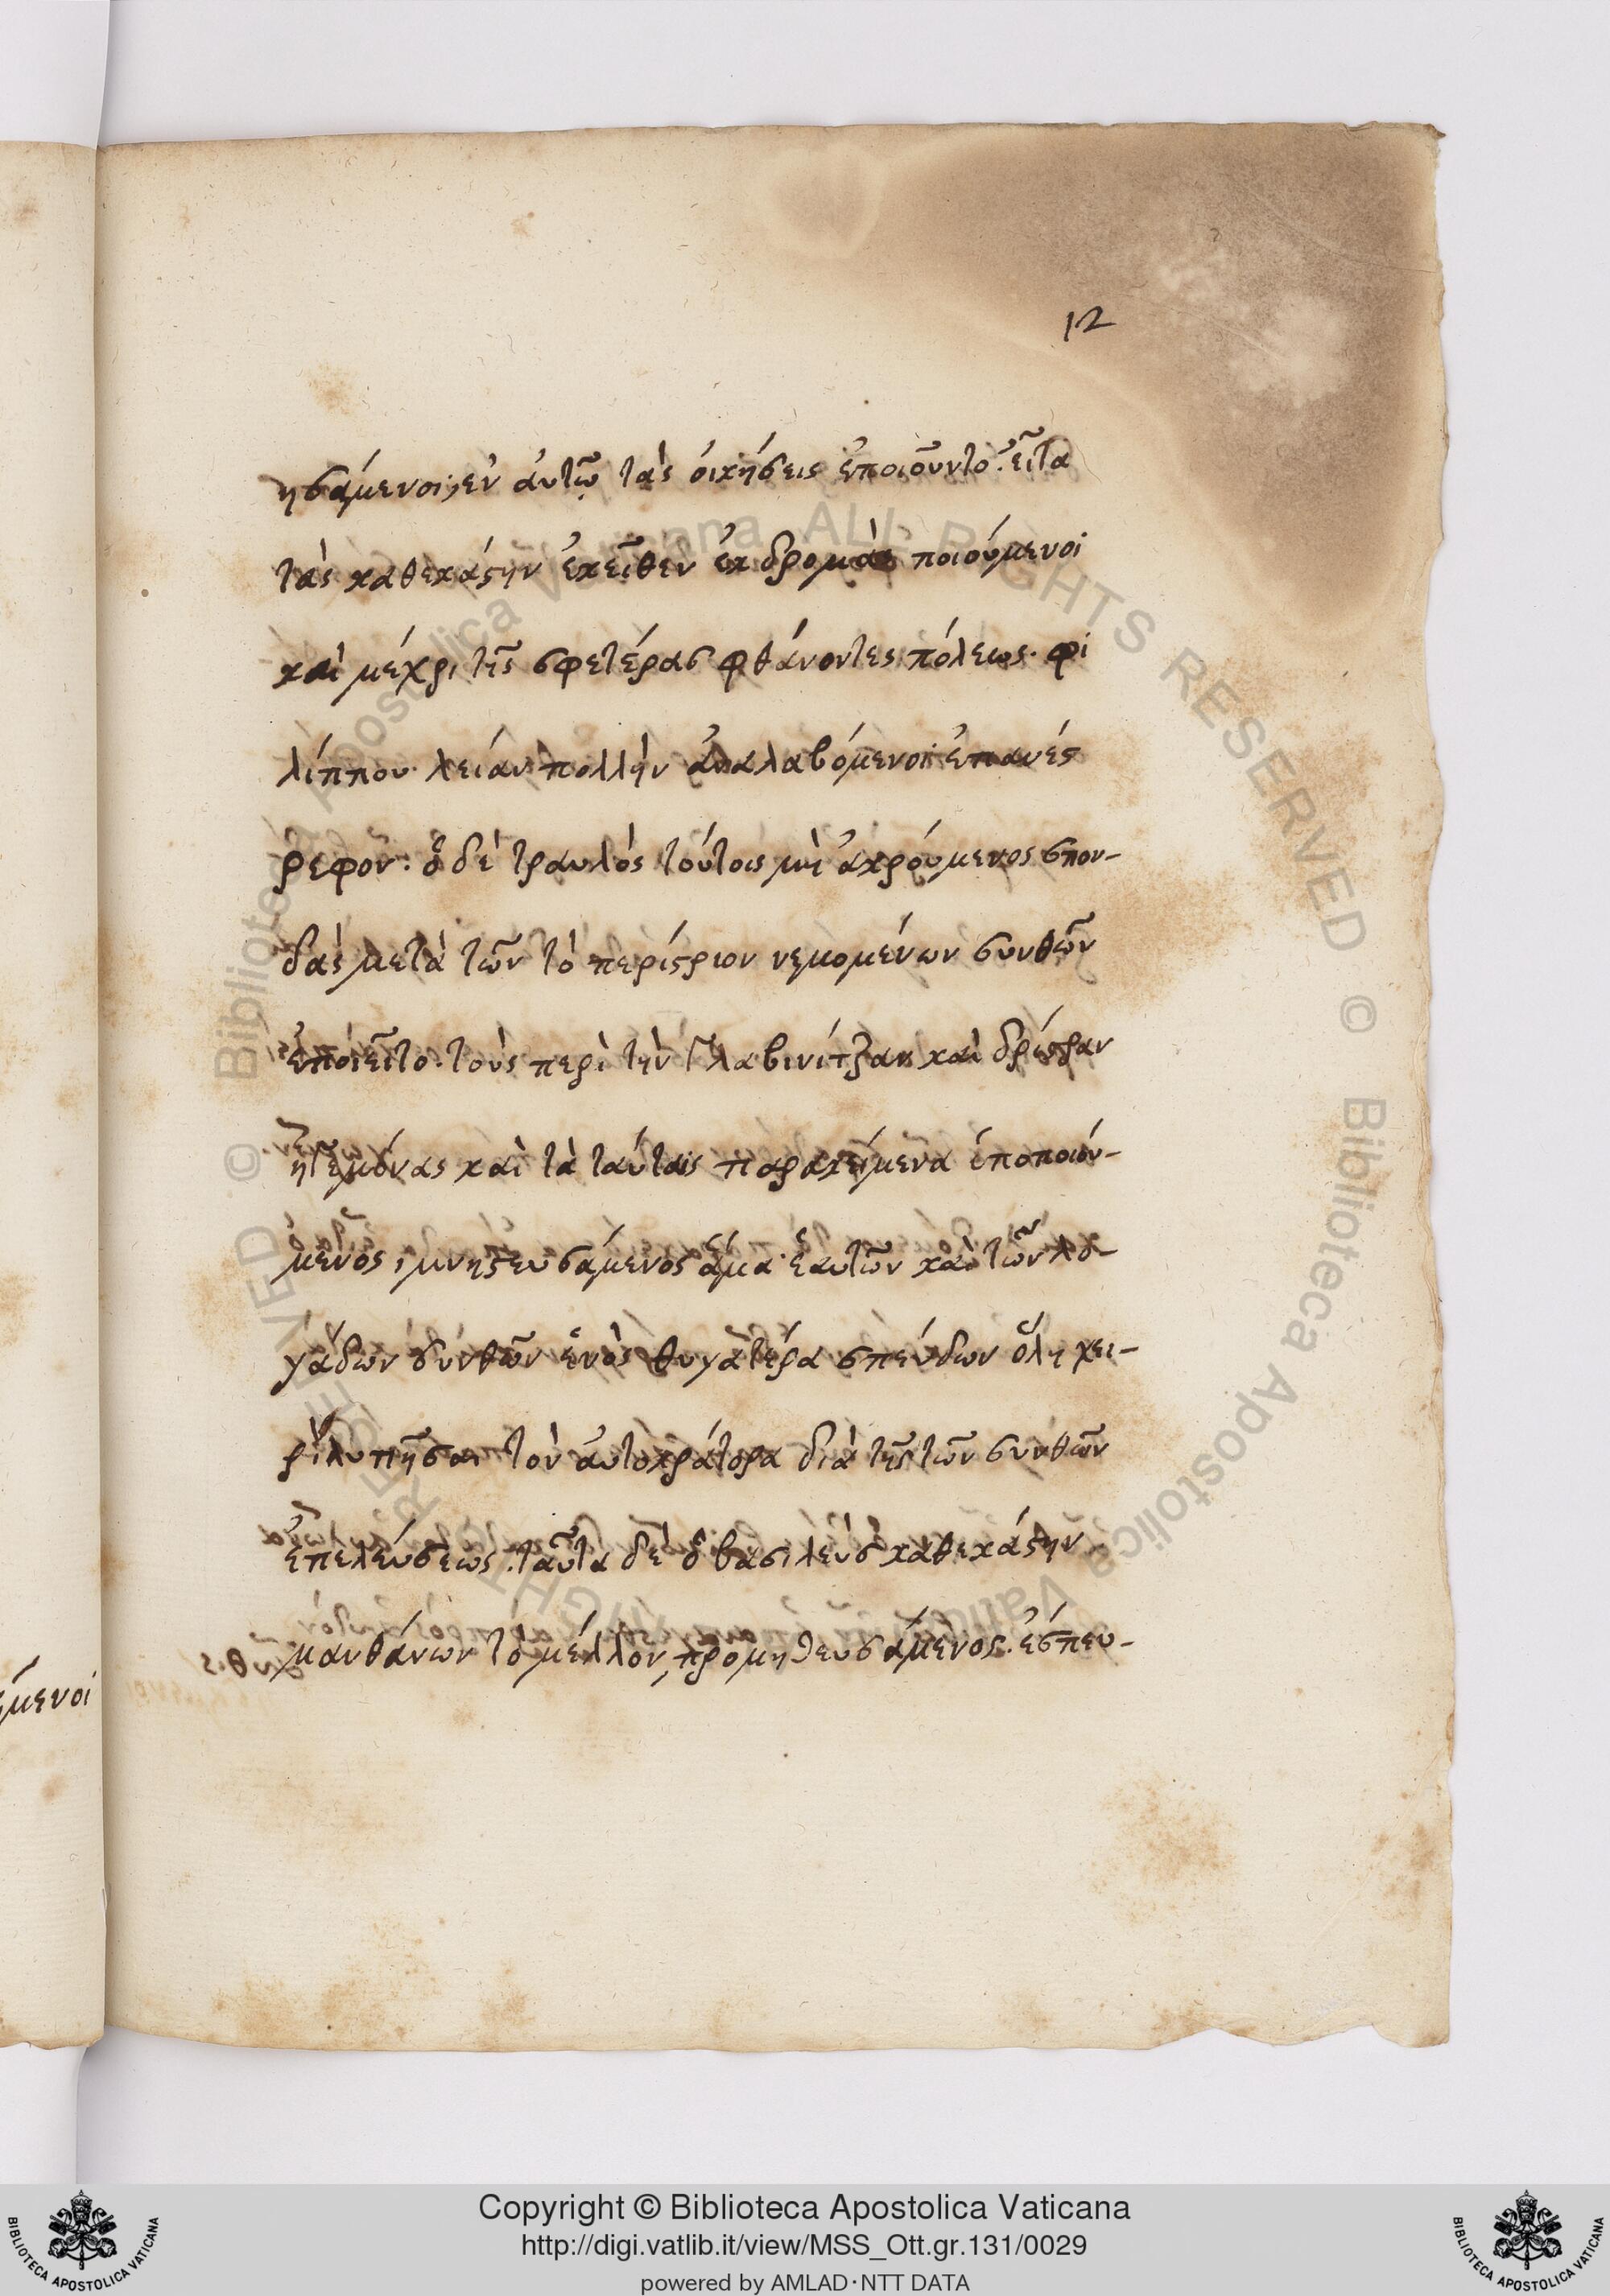 12
ησάμενοι, εν ἀυτῶ τὰς ὀικήσεις ἐποιοῦντο. εἶτα
τὰς καθεκάστην ἐκεῖθεν ἐκδρομὰς ποιούμενοι
καὶ μέχρι τῆς σφετέρας φθάνοντες πόλεως. φι
λίππου λείαν πολλὴν ἀναλαβόμενοι ἐπανές
ρεφον: ὁ δὲ τραυλὸς τούτοις μὴ ἀκρούμενος σπον-
δὰς μετὰ τῶν τὸ περίστριον νεμομένων σκυθῶν
ἐποιεῖτο. τοὺς περὶ τὴν Γλαβινίτζαν καὶ δρίστραν
ἡγεμόνας καὶ τὰ ταύταις παρακείμενα ὑποποιού-
μενος, μνηστευσάμενος ἅμα ἑαυτῶν καὶ τῶν λο-
γάδων σκυθῶν ἑνὸς θυγατέρα σπεύδων ὅλη χει-
ρὶ λυπῆσαι τὸν ἀυτοκράτορα διὰ τῆς τῶν σκυθῶν
ἐπελεύσεως. ταῦτα δὲ ὁ βασιλεὺς καθεκάστην
μανθάνων τὸ μέλλον, προμηθευσάμενος. ἐσπευ-
μενοι
Copyright © Biblioteca Apostolica Vaticana
http://digi.vatlib.it/view/MSS_Ott.gr.131/0029
powered by AMLAD·NTT DATA
BIBLIOTECA APOSTOLICA VATICANA
BIBLIOTECA APOSTOLICA VATICANA
© Biblioteca Apostolica Vaticana ALL RIGHTS RESERVED
© Biblioteca Apostolica Vaticana ALL RIGHTS RESERVED